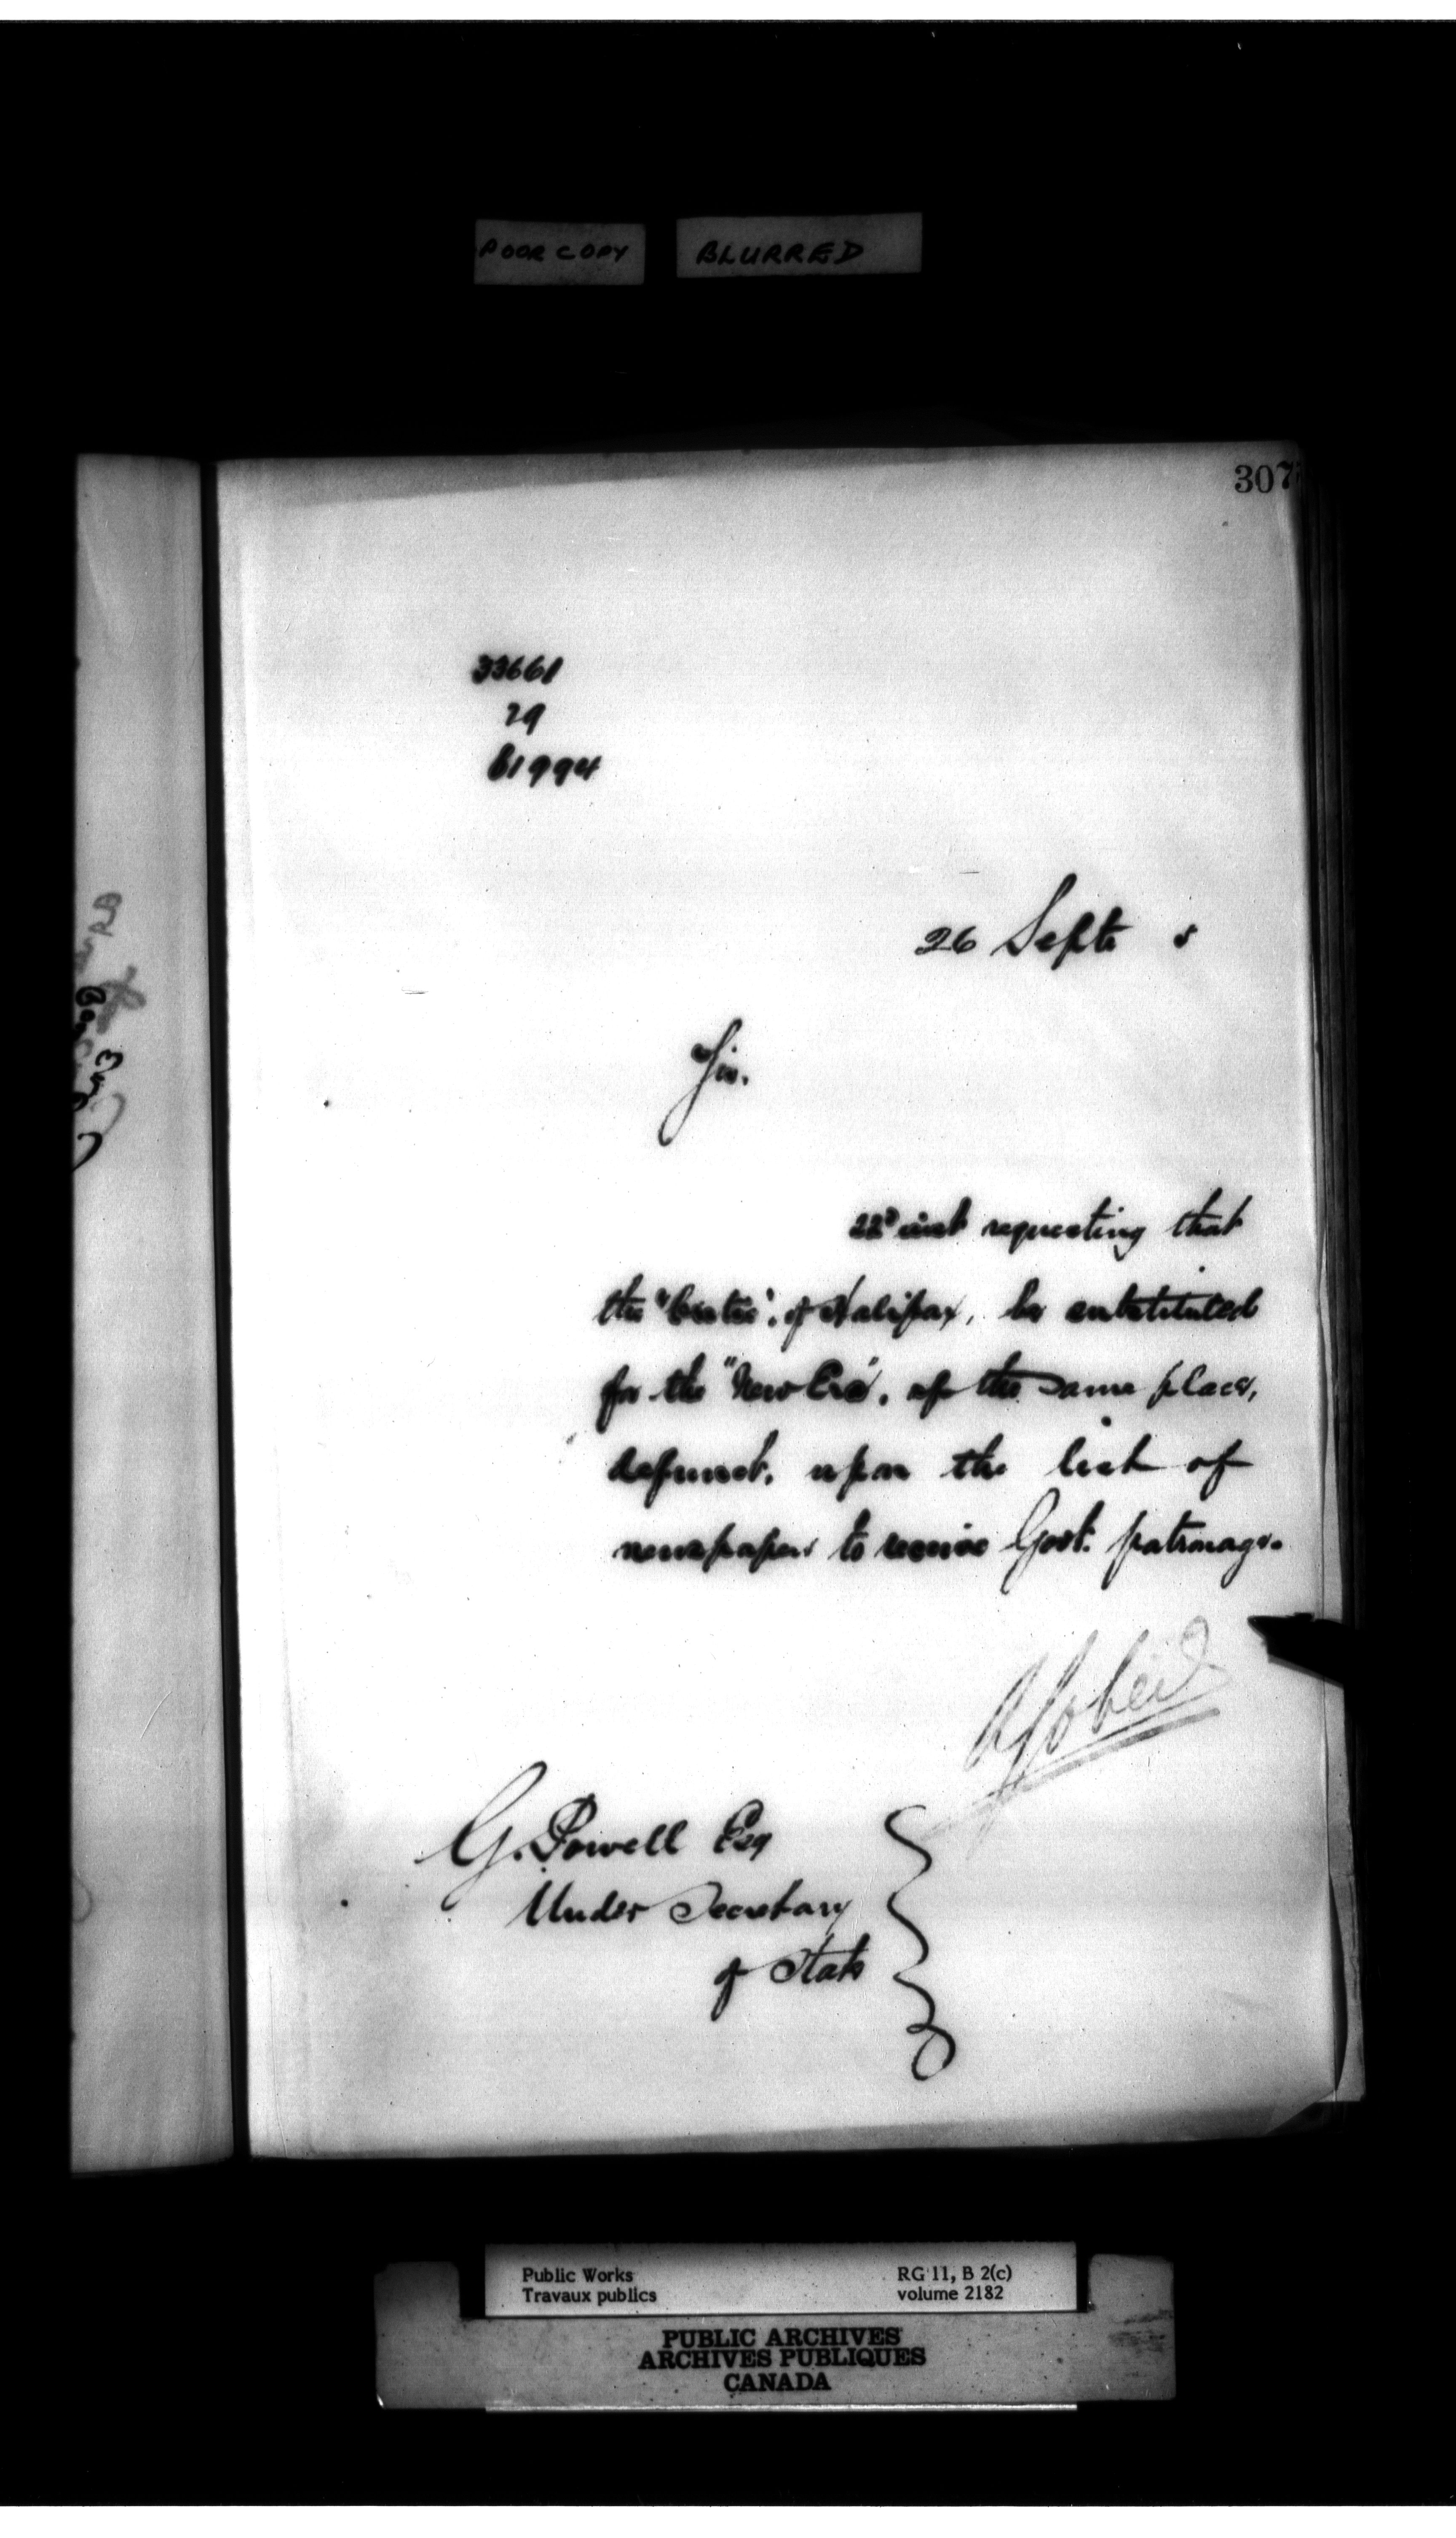 POOR COPY BLURRED
307
33661
29
61994
26 Septr 5
Sir.
22d inst requesting that
the "Critic", of Halifax, be substituted
for the "New Era", of the same place,
defunct, upon the list of
newspapers to receive Govt. patronage.
AGobeil
G. Powell Esq
Under Secretary
of State
Public Works
Travaux publics
RG 11, B 2(c)
volume 2182
PUBLIC ARCHIVES
ARCHIVES PUBLIQUES
CANADA